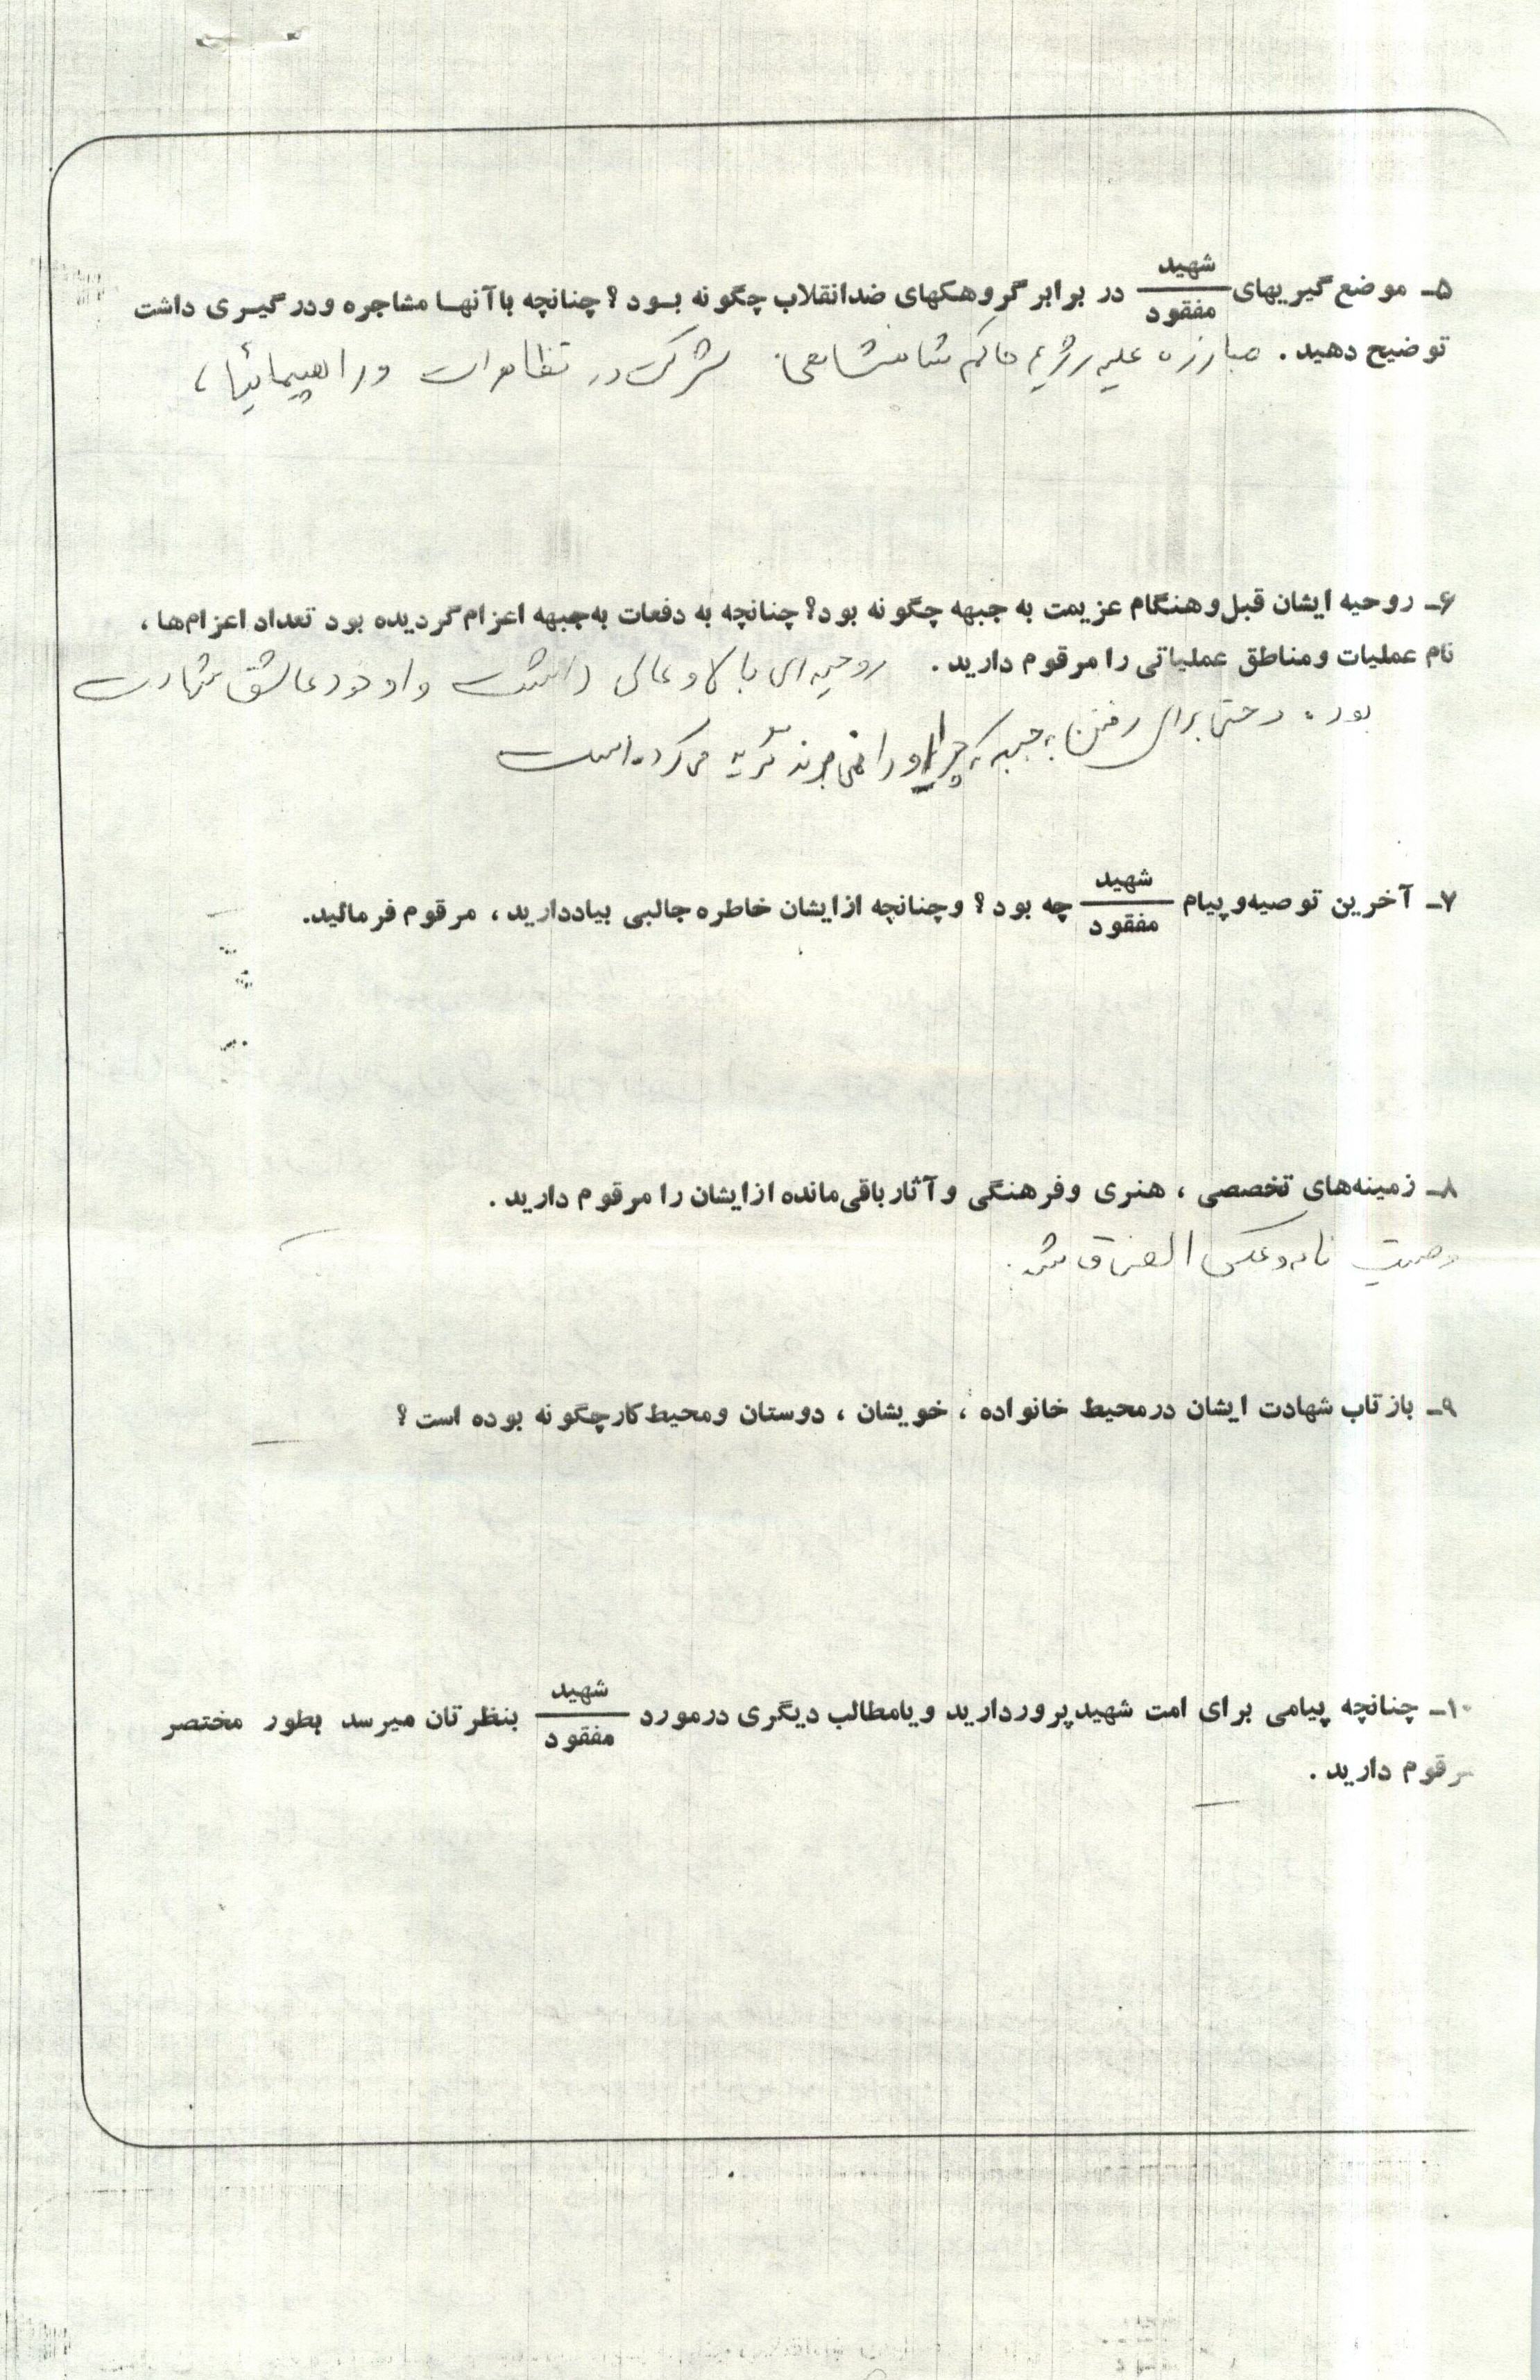 ۵ـ موضع گیریهای شهید / مفقود در برابر گروهکهای ضدانقلاب چگونه بود ؟ چنانچه باآنها مشاجره ودرگیری داشت
توضیح دهید . مبارزه علیه رژیم حاکم شاهنشاهی. شرکت در تظاهرات و راهپیمائیها ،
۶ـ روحیه ایشان قبل وهنگام عزیمت به جبهه چگونه بود؟ چنانچه به دفعات به جبهه اعزام گردیده بود تعداد اعزام‌ها ،
نام عملیات ومناطق عملیاتی را مرقوم دارید . روحیه‌ای بالا و عالی داشت و او خود عاشق شهادت
بود . و حتی برای رفتن به جبهه که چرا او را نمی‌برند گریه می‌کرده است
۷ـ آخرین توصیه‌وپیام شهید / مفقود چه بود ؟ وچنانچه ازایشان خاطره جالبی بیاددارید ، مرقوم فرمائید.
۸ـ زمینه‌های تخصصی ، هنری وفرهنگی وآثارباقی‌مانده ازایشان را مرقوم دارید .
وصیت نامه و عکس الصاق شد.
۹ـ بازتاب شهادت ایشان درمحیط خانواده ، خویشان ، دوستان ومحیط کارچگونه بوده است ؟
۱۰ـ چنانچه پیامی برای امت شهیدپروردارید ویامطالب دیگری درمورد شهید / مفقود بنظرتان میرسد بطور مختصر
مرقوم دارید .